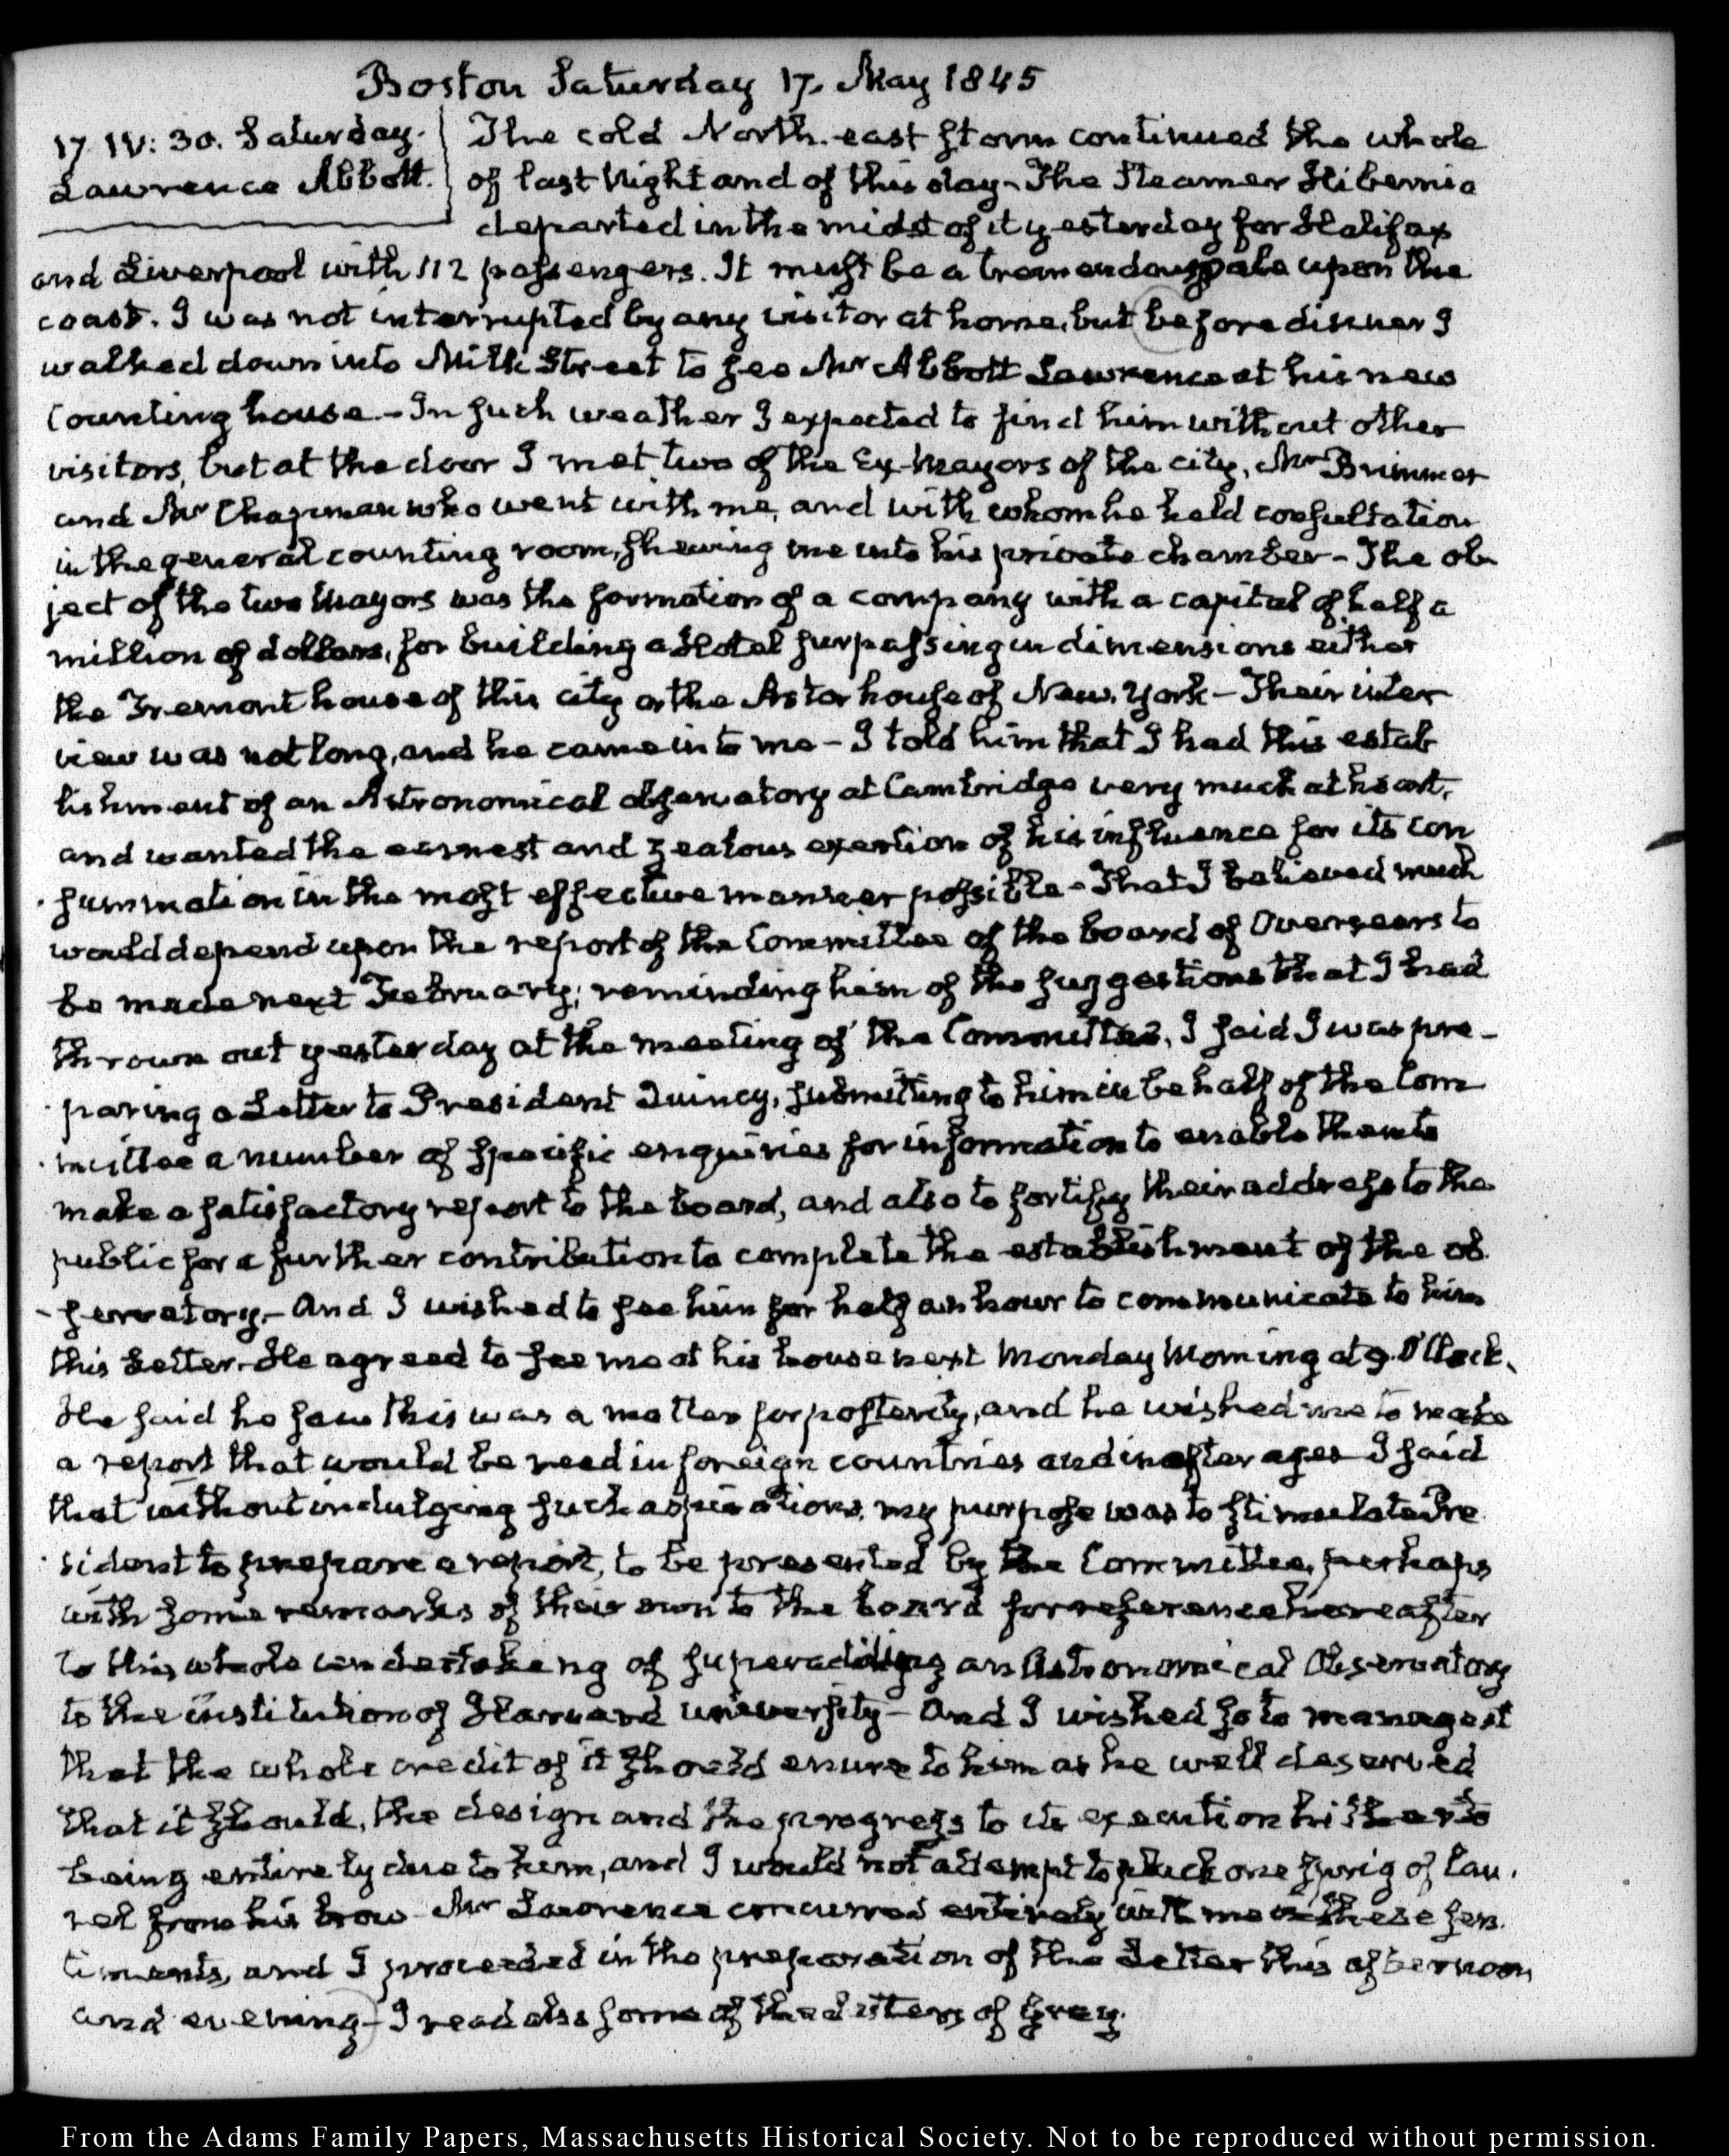 Boston Saturday 17. May 1845
17. IV: 30. Saturday.
Lawrence Abbott.
The cold North-east storm continued the whole
of last Night and of this day - The Steamer Hibernia
departed in the midst of it yesterday for Halifax
and Liverpool with 112 passengers. It must be a tremendous gale upon the
coast. I was not interrupted by any visitor at home, but before dinner I
walked down into Milk Street to see Mr Abbott Lawrence at his new
Counting house - In such weather I expected to find him without other
visitors, but at the door I met two of the Ex-Mayors of the city, Mr Brimmer
and Mr Chapman who went with me, and with whom he held consultation
in the general counting room, shewing me into his private chamber - The ob
ject of the two Mayors was the formation of a company with a capital of half a
million of dollars, for building a Hotel surpassing in dimensions either
the Tremont house of this city or the Astor house of New York - Their inter
view was not long, and he came in to me - I told him that I had this estab
lishment of an Astronomical observatory at Cambridge very much at heart,
and wanted the earnest and zealous exertion of his influence for its con
summation in the most effective manner possible - That I believed much
would depend upon the report of the Committee of the board of Overseers to
be made next February; reminding him of the suggestions that I had
thrown out yesterday at the meeting of the Committee, I said I was pre-
paring a Letter to President Quincy, submitting to him in behalf of the Com
mittee a number of specific enquiries for information to enable them to
make a satisfactory report to the board, and also to fortify their address to the
public for a further contribution to complete the establishment of the ob
servatory - And I wished to see him for half an hour to communicate to him
this Letter. He agreed to see me at his house next Monday Morning at 9. O'Clock.
He said he saw this was a matter for posterity, and he wished me to make
a report that would be read in foreign countries and in after ages I said
that without indulging such aspirations, my purpose was to stimulate Pre
sident to prepare a report, to be presented by the Committee, perhaps
with some remarks of their own to the board for reference hereafter
to this whole undertaking of superadding an Astronomical Observatory
to the institution of Harvard university - And I wished so to manage it
that the whole credit of it should enure to him as he well deserved
that it should, the design and the progress to its execution hitherto
being entirely due to him, and I would not attempt to pluck one sprig of lau.
rel from his brow Mr Lawrence concurred entirely with me in these sen.
timents, and I proceeded in the preparation of the Letter this afternoon
and evening - I read also some of the Letters of Grey.
From the Adams Family Papers, Massachusetts Historical Society. Not to be reproduced without permission.